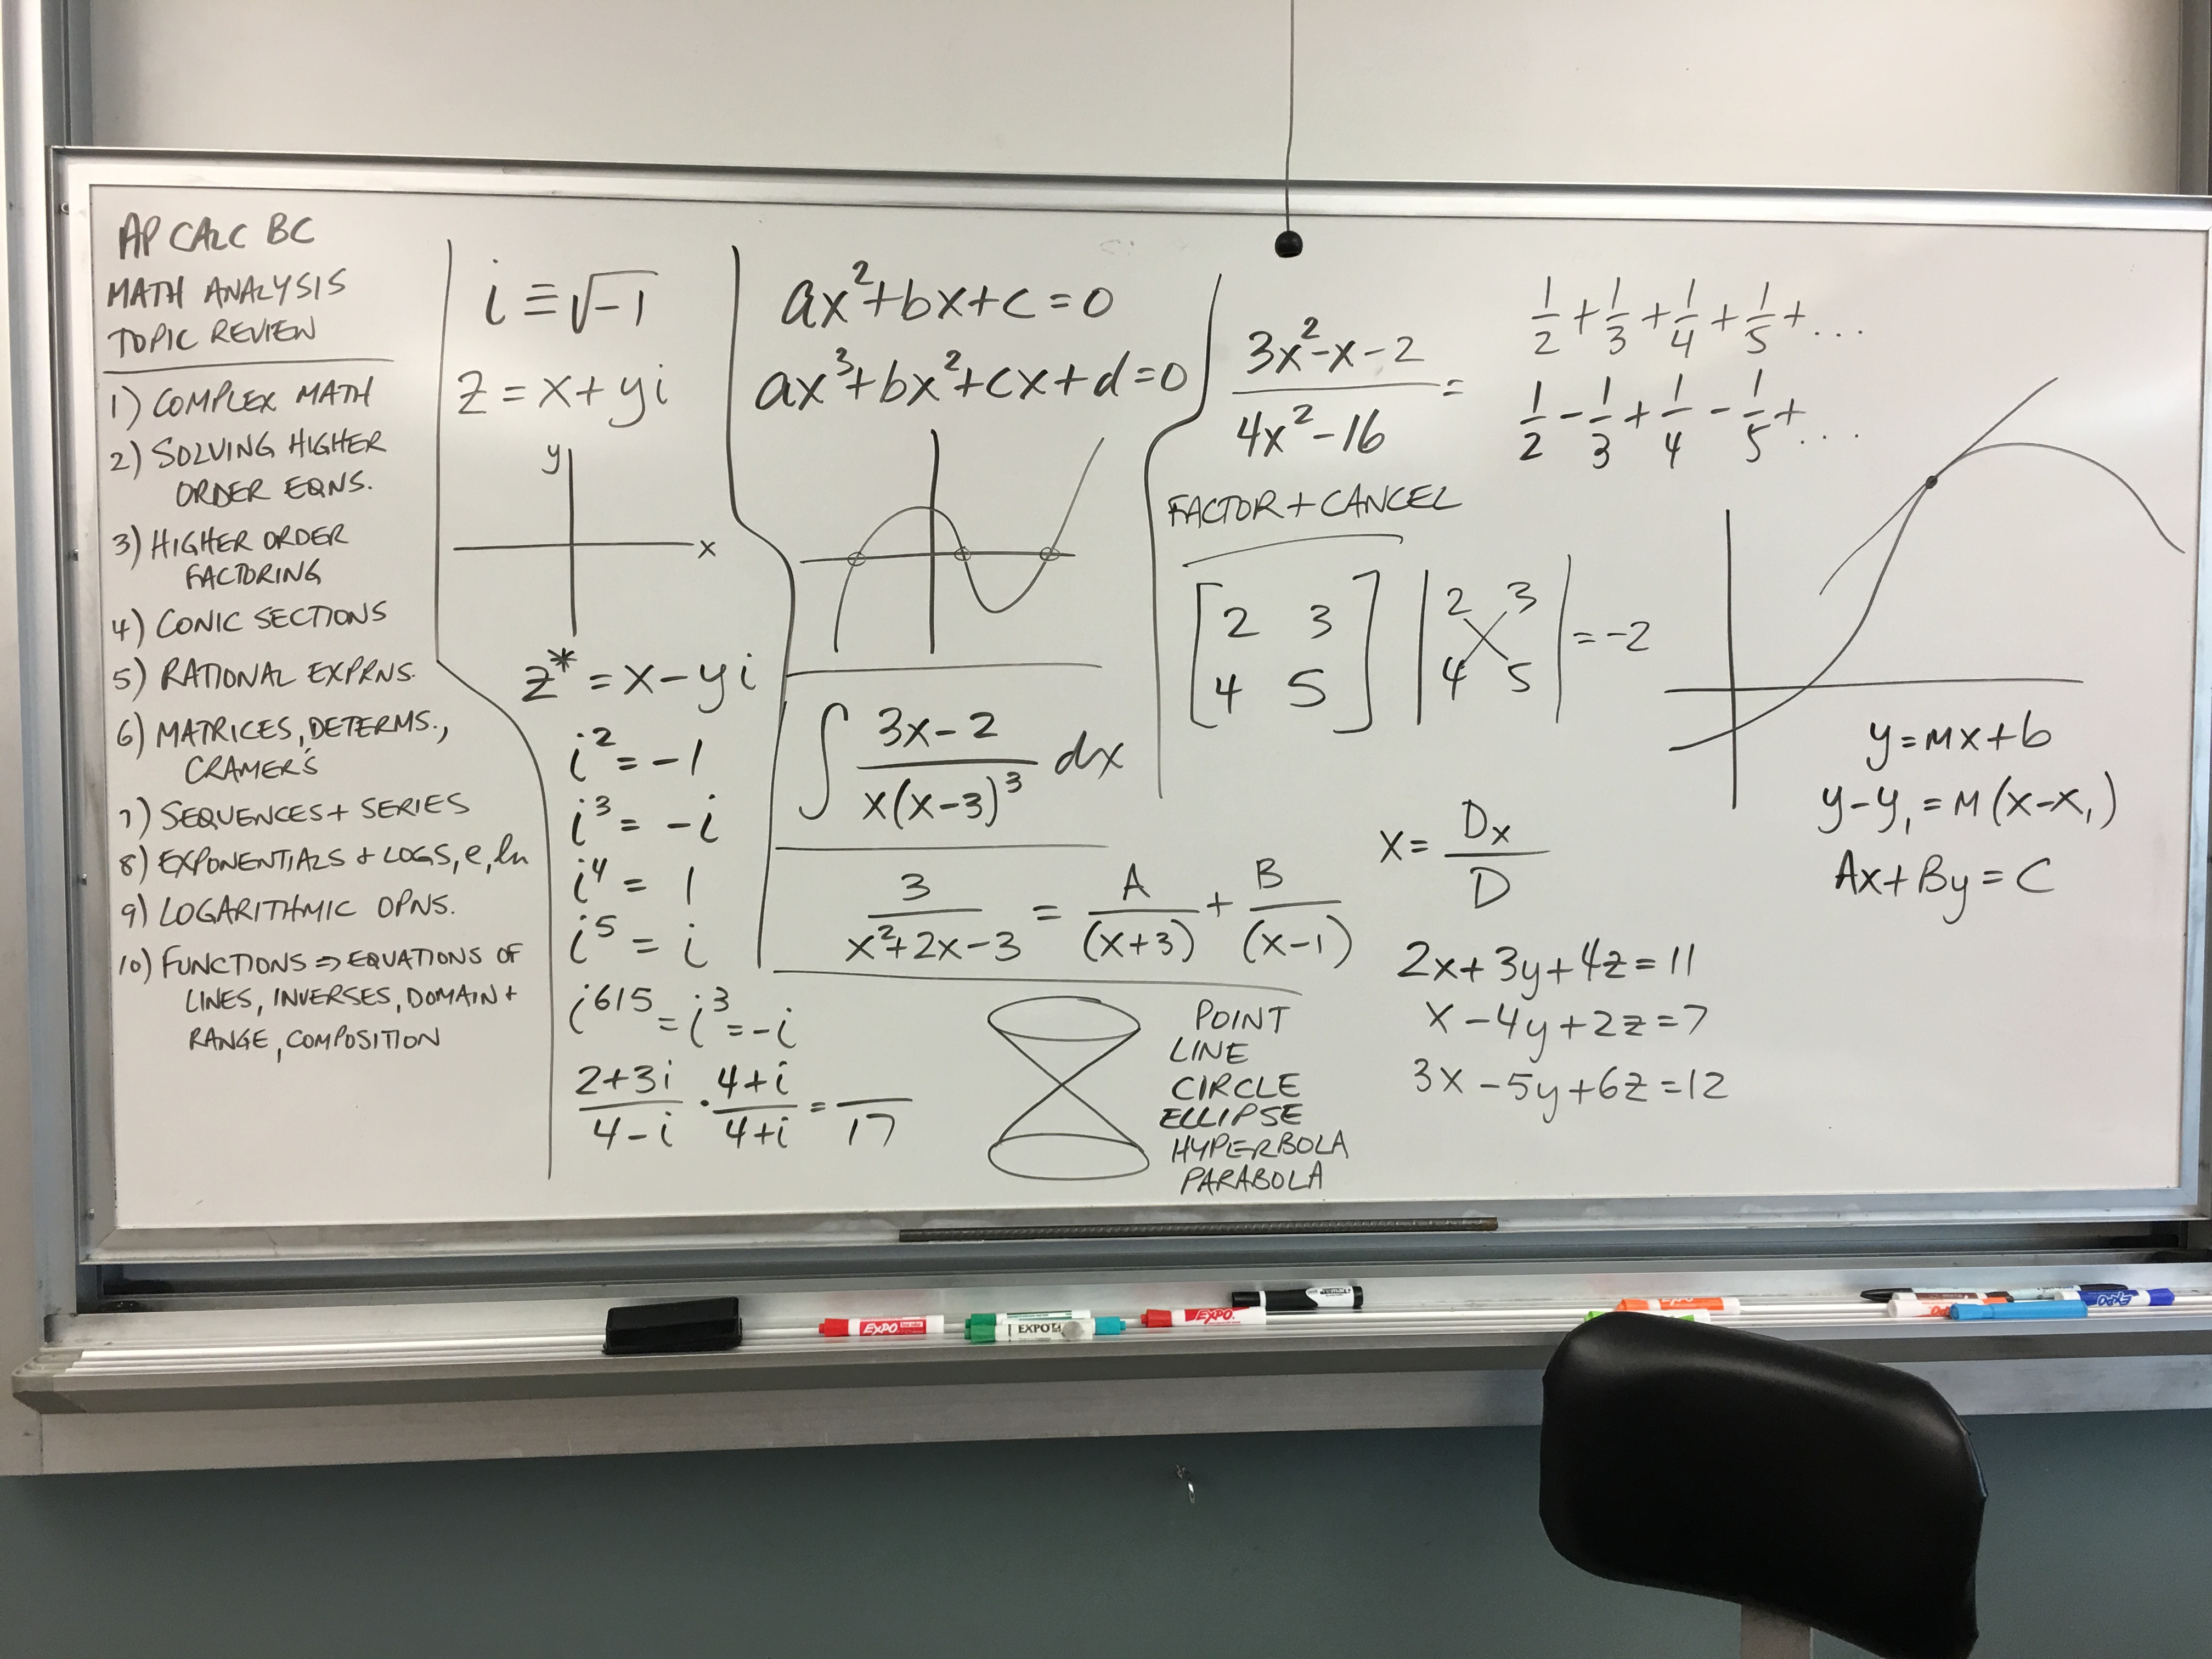 AP CALC BC
MATH ANALYSIS
TOPIC REVIEW
1) COMPLEX MATH
2) SOLVING HIGHER
ORDER EQNS.
3) HIGHER ORDER
FACTORING
4) CONIC SECTIONS
5) RATIONAL EXPRNS.
6) MATRICES, DETERMS.,
CRAMER'S
7) SEQUENCES + SERIES
8) EXPONENTIALS + LOGS, e, ln
9) LOGARITHMIC OPNS.
10) FUNCTIONS ⇒ EQUATIONS OF
LINES, INVERSES, DOMAIN +
RANGE, COMPOSITION
i ≡ √-1
z = x + yi
y
x
z* = x - yi
i² = -1
i³ = -i
i⁴ = 1
i⁵ = i
i⁶¹⁵ = i³ = -i
(2+3i)/(4-i) · (4+i)/(4+i) = /17
ax² + bx + c = 0
ax³ + bx² + cx + d = 0
∫ (3x-2)/(x(x-3)³) dx
3/(x²+2x-3) = A/(x+3) + B/(x-1)
POINT
LINE
CIRCLE
ELLIPSE
HYPERBOLA
PARABOLA
(3x²-x-2)/(4x²-16) =
FACTOR + CANCEL
[2 3
4 5]
|2 3
4 5| = -2
1/2 + 1/3 + 1/4 + 1/5 + ...
1/2 - 1/3 + 1/4 - 1/5 + ...
x = Dx/D
2x + 3y + 4z = 11
x - 4y + 2z = 7
3x - 5y + 6z = 12
y = mx + b
y - y₁ = m(x - x₁)
Ax + By = C
EXPO
EXPO
EXPO
EXPO